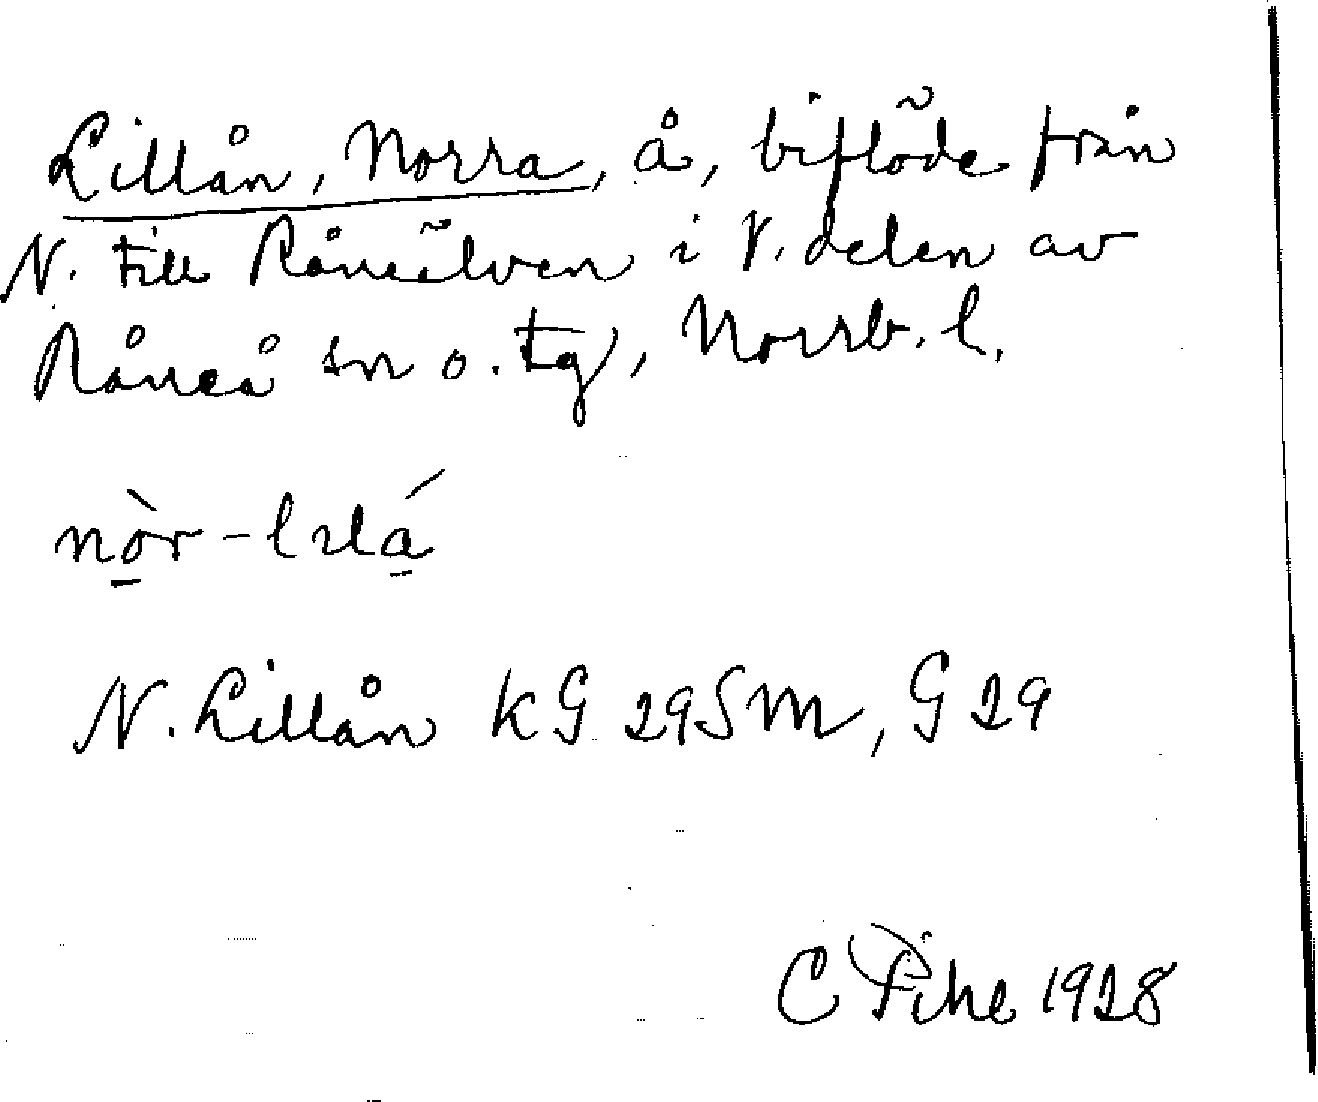 Lillån, Norra, å, biflöde från
N. till Råneälven i V. delen av
Råneå sn o. tg, Norrb. l.
nò̱r-lılá̱
N. Lillån KG 29SM, G 29
C Pihl 1928